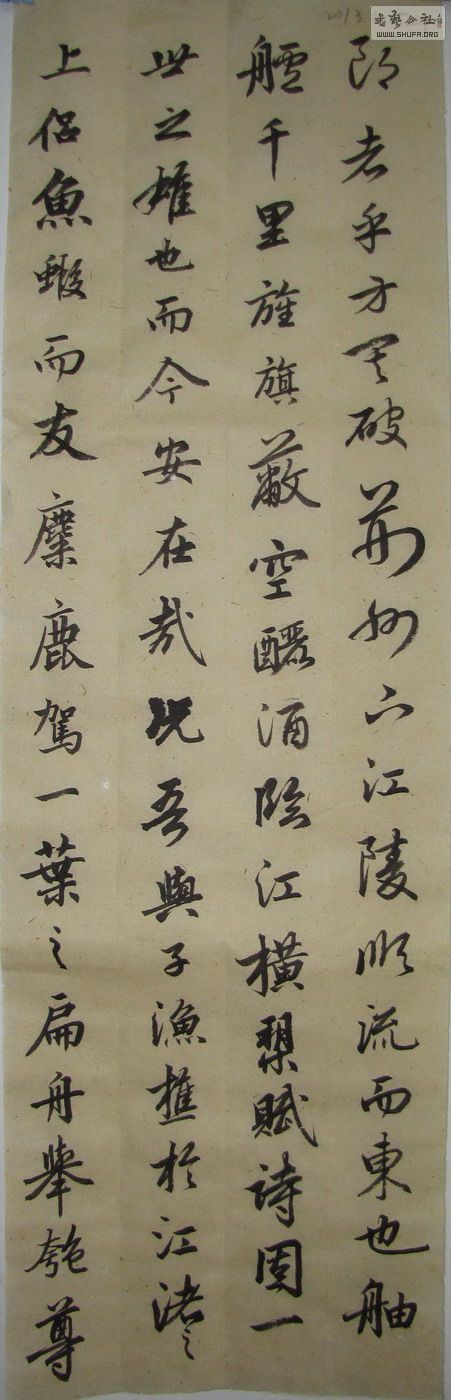 郎者乎方其破荊州下江陵順流而東也舳
艫千里旌旗蔽空釃酒臨江橫槊賦詩固一
世之雄也而今安在哉況吾與子漁樵於江渚之
上侶魚蝦而友麋鹿駕一葉之扁舟舉匏尊
書藝公社
WWW.SHUFA.ORG